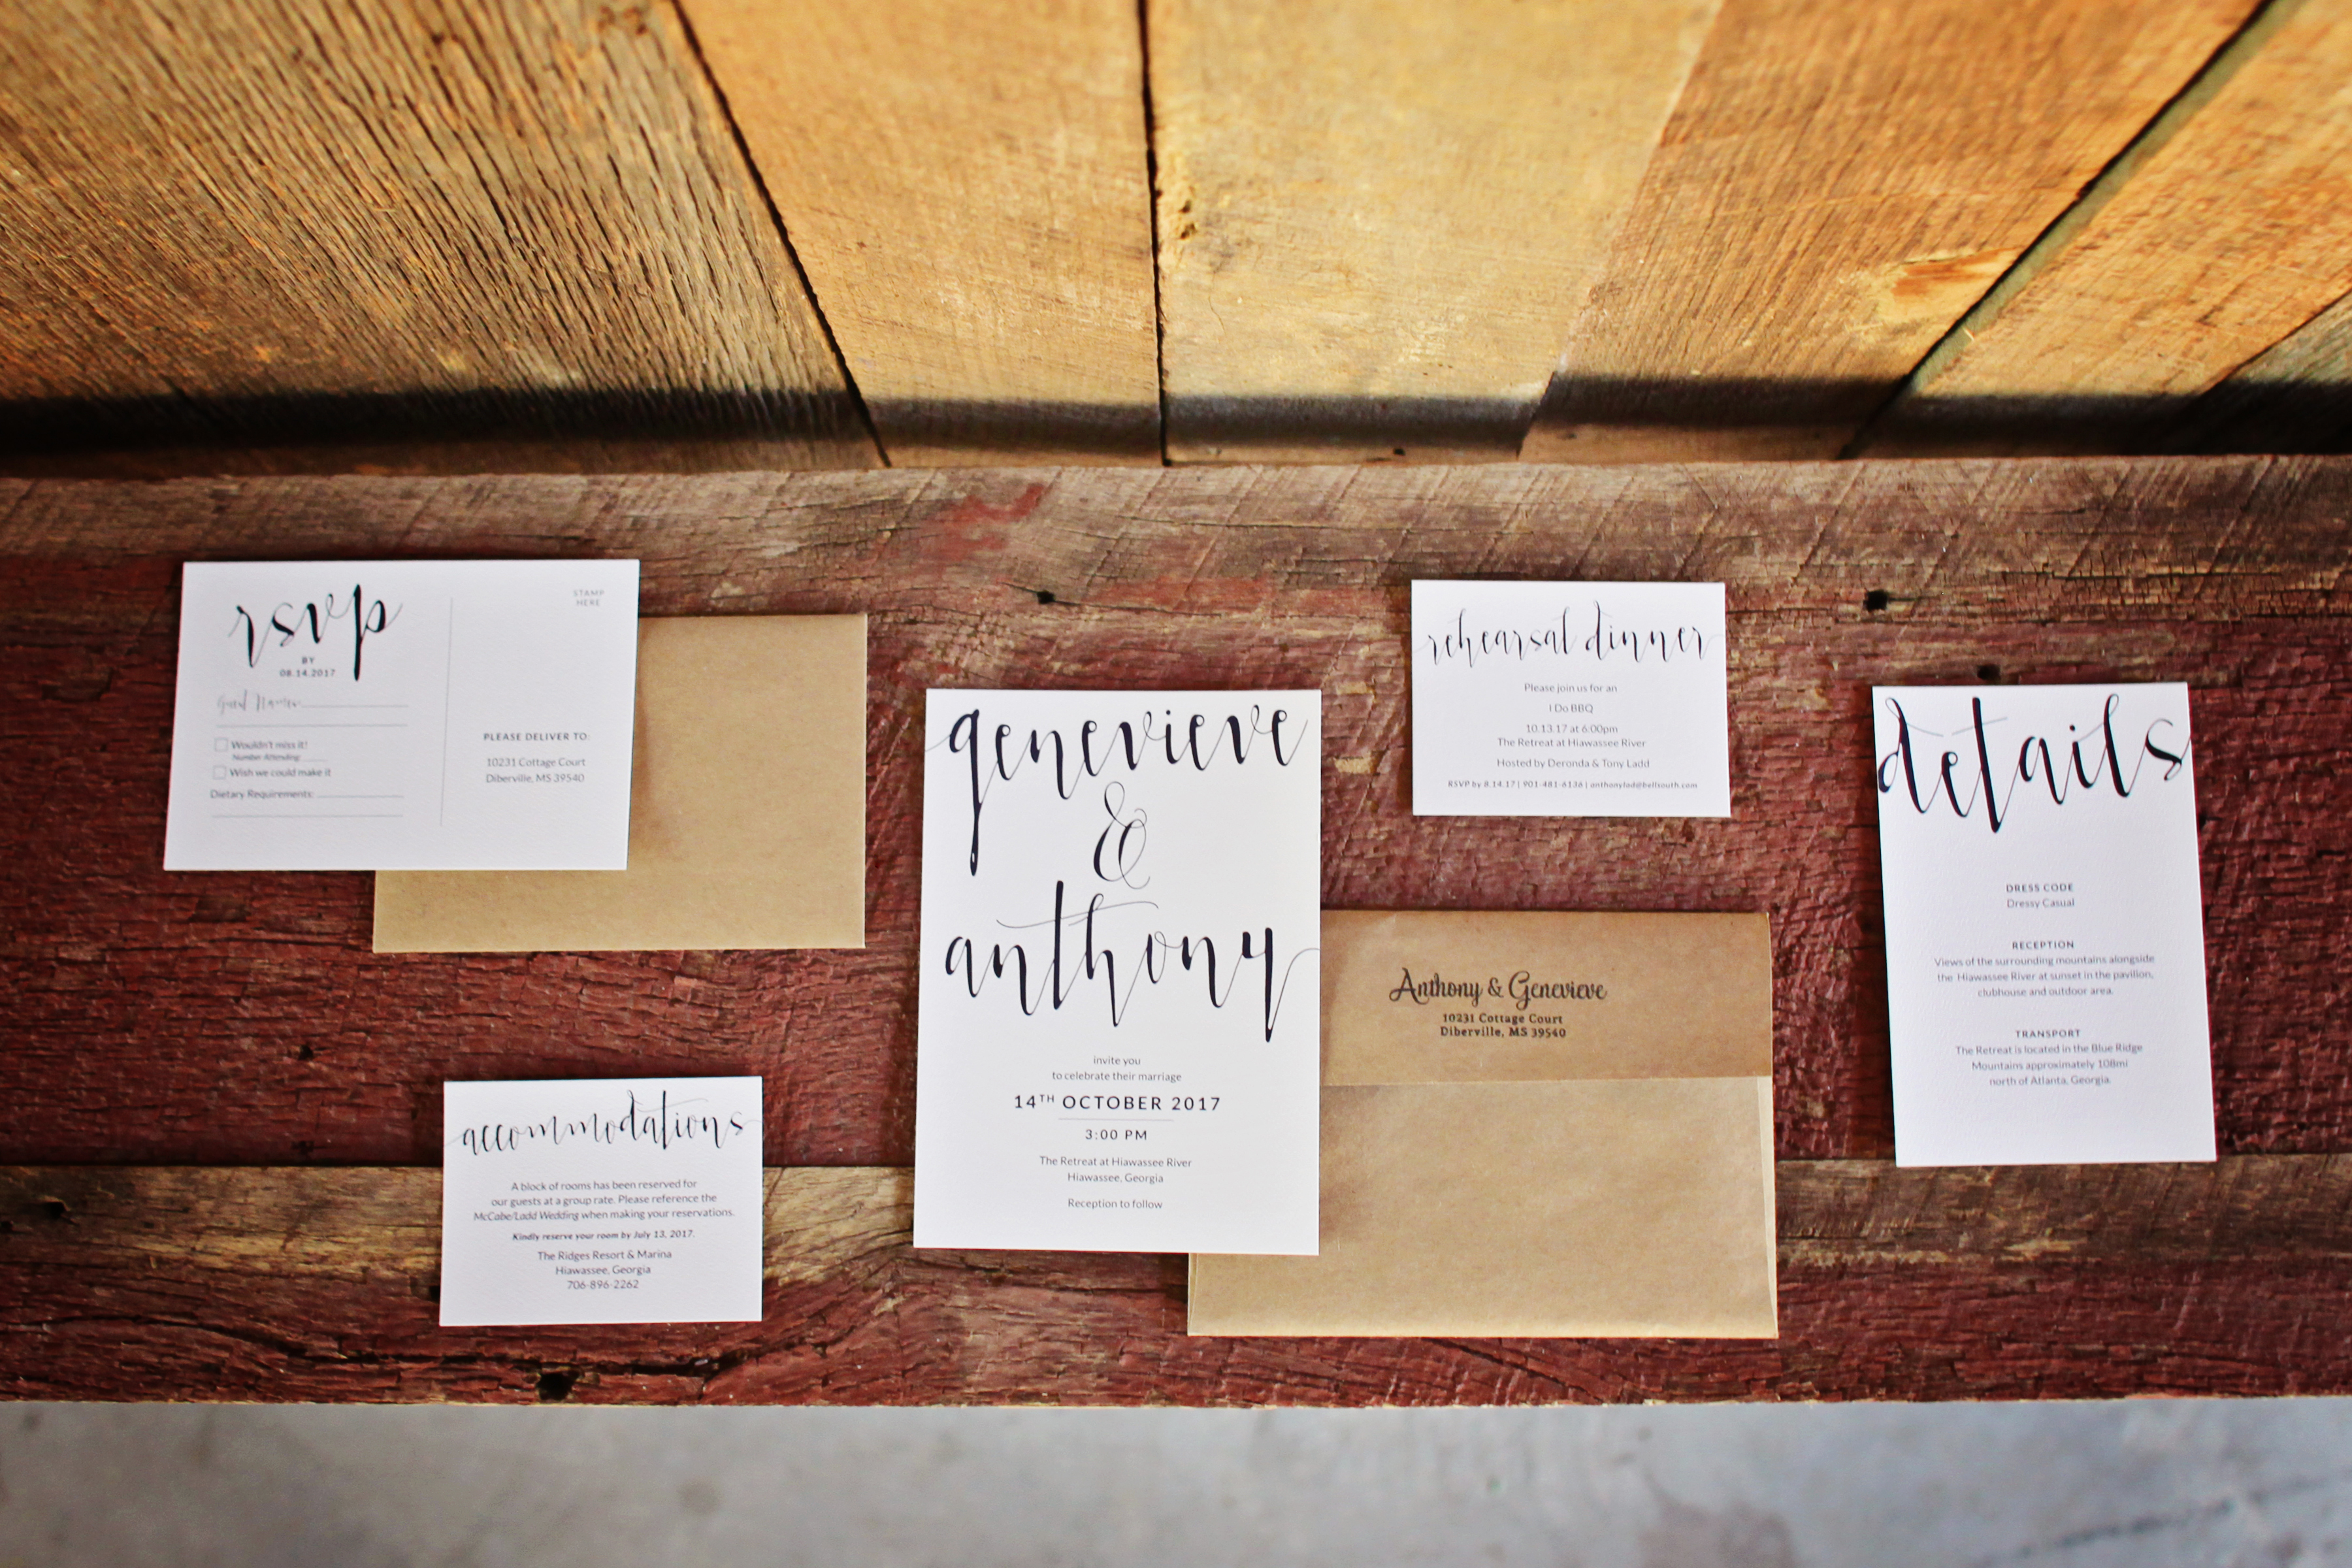 rsvp
BY
08.14.2017
Guest Names
Wouldn't miss it!
Number Attending:
Wish we could make it
Dietary Requirements:
STAMP
HERE
PLEASE DELIVER TO:
10231 Cottage Court
Diberville, MS 39540
accommodations
A block of rooms has been reserved for
our guests at a group rate. Please reference the
McCabe/Ladd Wedding when making your reservations.
Kindly reserve your room by July 13, 2017.
The Ridges Resort & Marina
Hiawassee, Georgia
706-896-2262
genevieve
&
anthony
invite you
to celebrate their marriage
14TH OCTOBER 2017
3:00 PM
The Retreat at Hiawassee River
Hiawassee, Georgia
Reception to follow
rehearsal dinner
Please join us for an
I Do BBQ
10.13.17 at 6:00pm
The Retreat at Hiawassee River
Hosted by Deronda & Tony Ladd
RSVP by 8.14.17 | 901-481-6136 | anthonylad@bellsouth.com
Anthony & Genevieve
10231 Cottage Court
Diberville, MS 39540
details
DRESS CODE
Dressy Casual
RECEPTION
Views of the surrounding mountains alongside
the Hiawassee River at sunset in the pavilion,
clubhouse and outdoor area.
TRANSPORT
The Retreat is located in the Blue Ridge
Mountains approximately 108mi
north of Atlanta, Georgia.